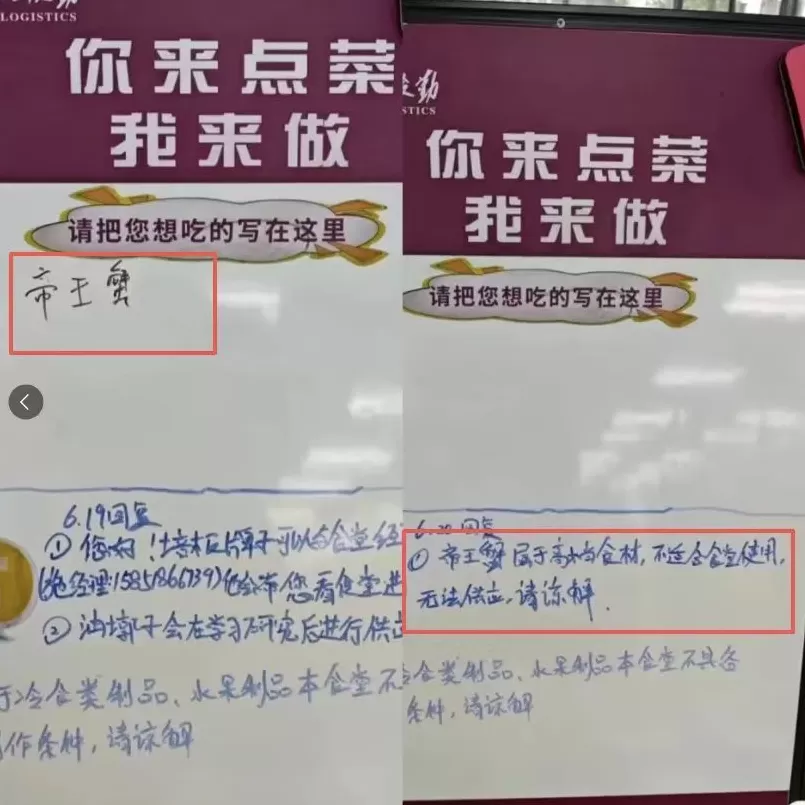 LOGISTICS
你来点菜
我来做
请把您想吃的写在这里
帝王蟹
6.19回复
①您好！培根品牌可以与食堂经
经理15858166739)他会带您看食堂进
②油墩子会在学习研究后进行供应
于冷食类制品、水果制品本食堂不
作条件，请谅解
勤
ISTICS
你来点菜
我来做
请把您想吃的写在这里
6.20回复
①帝王蟹属于高档食材，不适合食堂使用，
无法供应，请谅解.
冷食类制品、水果制品本食堂不具备
条件，请谅解